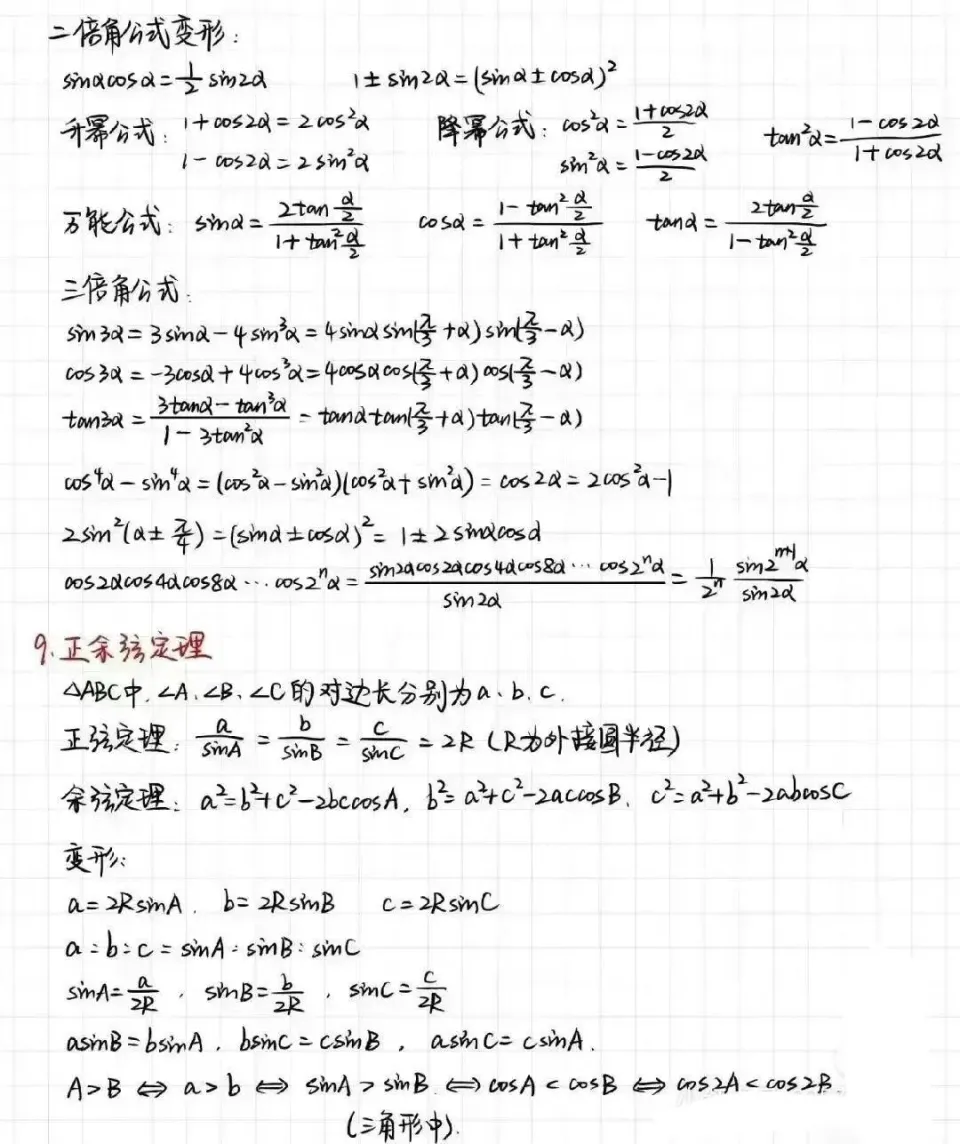 二倍角公式变形:
sinαcosα=1/2 sin2α 1±sin2α=(sinα±cosα)²
升幂公式: 1+cos2α=2cos²α 降幂公式: cos²α=(1+cos2α)/2 tan²α=(1-cos2α)/(1+cos2α)
1-cos2α=2sin²α sin²α=(1-cos2α)/2
万能公式: sinα=(2tan α/2)/(1+tan² α/2) cosα=(1-tan² α/2)/(1+tan² α/2) tanα=(2tan α/2)/(1-tan² α/2)
三倍角公式:
sin3α=3sinα-4sin³α=4sinαsin(π/3+α)sin(π/3-α)
cos3α=-3cosα+4cos³α=4cosαcos(π/3+α)cos(π/3-α)
tan3α=(3tanα-tan³α)/(1-3tan²α)=tanαtan(π/3+α)tan(π/3-α)
cos⁴α-sin⁴α=(cos²α-sin²α)(cos²α+sin²α)=cos2α=2cos²α-1
2sin²(α±π/4)=(sinα±cosα)²=1±2sinαcosα
cos2αcos4αcos8α⋯cos2ⁿα=(sin2αcos2αcos4αcos8α⋯cos2ⁿα)/(sin2α)=1/2ⁿ (sin2ⁿ⁺¹α)/(sin2α)
9.正余弦定理
△ABC中,∠A、∠B、∠C的对边长分别为a、b、c.
正弦定理: a/sinA=b/sinB=c/sinC=2R (R为外接圆半径)
余弦定理: a²=b²+c²-2bccosA, b²=a²+c²-2accosB, c²=a²+b²-2abcosC
变形:
a=2RsinA, b=2RsinB c=2RsinC
a:b:c=sinA:sinB:sinC
sinA=a/2R, sinB=b/2R, sinC=c/2R
asinB=bsinA, bsinC=csinB, asinC=csinA.
A>B⇔a>b⇔sinA>sinB⇔cosA<cosB⇔cos2A<cos2B.
(三角形中).